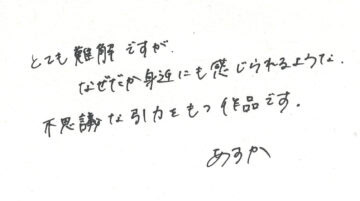 とても難解ですが.
なぜだか身近にも感じられるような.
不思議な引力をもつ作品です.
あすか